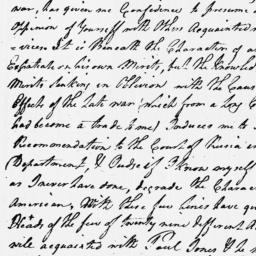 war, has given me Confidence to presume
Opinion of Yourself with others Acquainted
It is Beneath the Character of an
Expatiate on his own Merits, but the Knowled
Merits Sinking in Oblivion with the Caus
Effects of the late war (which from a long C
had become a trade to me) Induces me to
Recommendation to the Court of Russia
Department, & Judge if I know myself
as I never have done, degrade the Charac
American, With these few lines have
Heads of the few of twenty nine different A
well acquainted with Paul Jones & he